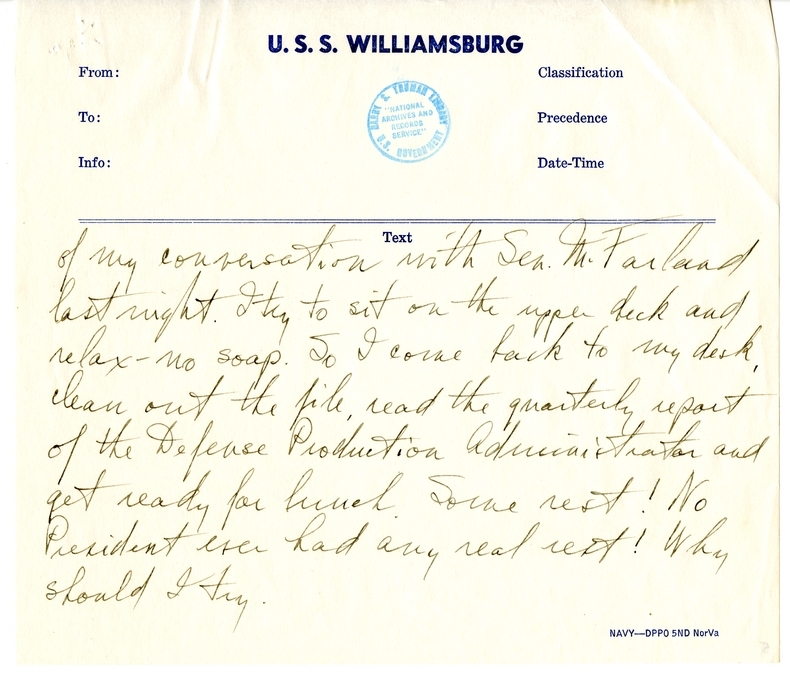 U. S. S. WILLIAMSBURG
From:
Classification
HARRY S. TRUMAN LIBRARY
"NATIONAL
ARCHIVES AND
RECORDS
SERVICE"
U.S. GOVERNMENT
To:
Precedence
Info:
Date-Time
Text
of my conversation with Sen. McFarland
last night. I try to sit on the upper deck and
relax-no soap. So I come back to my desk,
clean out the file, read the quarterly report
of the Defense Production Administrator and
get ready for lunch. Some rest! No
President ever had any real rest! Why
should I try.
NAVY—DPPO 5ND NorVa